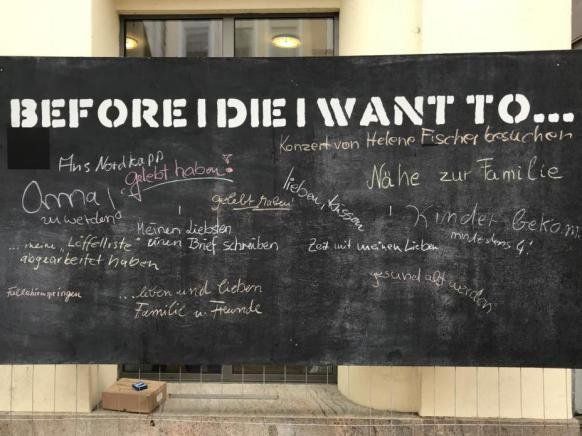 BEFORE I DIE I WANT TO...
Konzert von Helene Fischer besuchen
Ans Nordkapp
gelebt haben!
Nähe zur Familie
Oma!
zu werden
gelebt haben
lieben, lassen
Kinder bekom.
mindestens 4!
Meinen liebsten
einen Brief schreiben
... meine "Löffelliste"
abgearbeitet haben
Zeit mit meinen Lieben
gesund alt werden
Fallschirmspringen
...leben und lieben
Familie u. Freunde